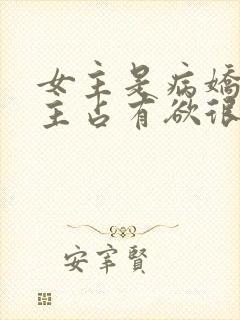 女主是病嬌
主占有欲很
安宰賢